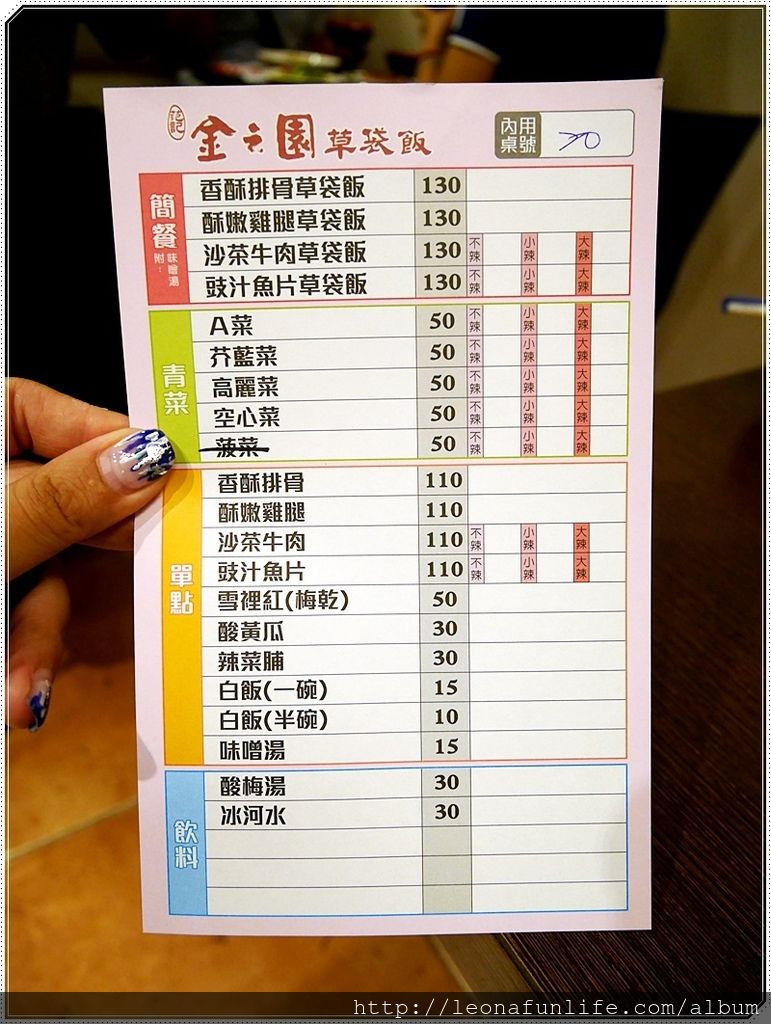 金之園草袋飯
內用桌號 70
簡餐
附:味噌湯
香酥排骨草袋飯 130
酥嫩雞腿草袋飯 130
沙茶牛肉草袋飯 130 不辣 小辣 大辣
豉汁魚片草袋飯 130 不辣 小辣 大辣
青菜
A菜 50 不辣 小辣 大辣
芥藍菜 50 不辣 小辣 大辣
高麗菜 50 不辣 小辣 大辣
空心菜 50 不辣 小辣 大辣
菠菜 50 不辣 小辣 大辣
單點
香酥排骨 110
酥嫩雞腿 110
沙茶牛肉 110 不辣 小辣 大辣
豉汁魚片 110 不辣 小辣 大辣
雪裡紅(梅乾) 50
酸黃瓜 30
辣菜脯 30
白飯(一碗) 15
白飯(半碗) 10
味噌湯 15
飲料
酸梅湯 30
冰河水 30
http://leonafunlife.com/album